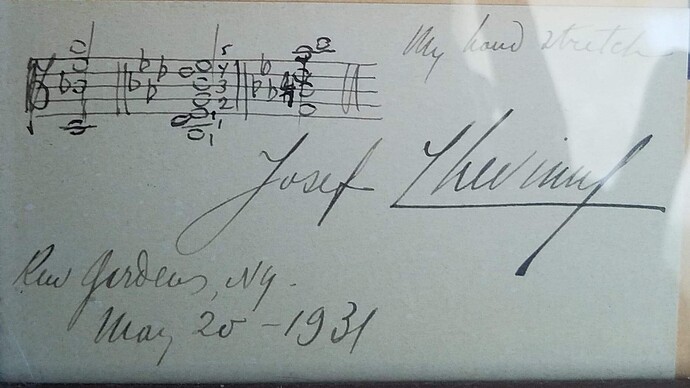 My hand stretch
5
4
3
2
1 1
Josef Lhevinne
Kew Gardens, Ny.
May 20 - 1931